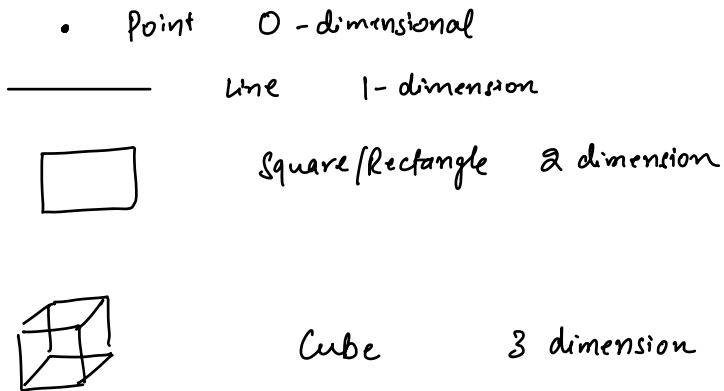 Point 0-dimensional
Line 1-dimension
Square/Rectangle 2 dimension
Cube 3 dimension